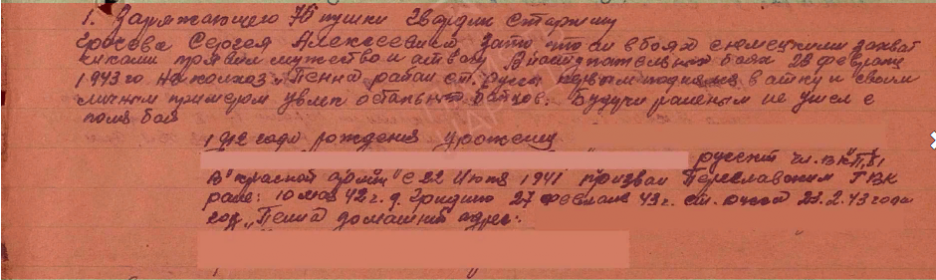 1. Заряжающего 76 пушки Гвардии старшину
Грачева Сергея Алексеевича за то что он в боях с немецкими захват
чиками проявил мужество и отвагу В наступательных боях 28 февраля
1943 го на колхоз „Пенна район ст. Русса первым поднялся в атаку и своим
личным примером увлек остальных бойцов. Будучи раненым не ушел с
поля боя
1912 года рождения уроженец
русский чл. ВКП/б/
В "Красной армии" с 22 Июня 1941 призван Переславским ГВК
ране: 10 мая 42 г. д. 27 февраля 43 г. ст. 27.2.43 года
„Пенна домашний адрес: